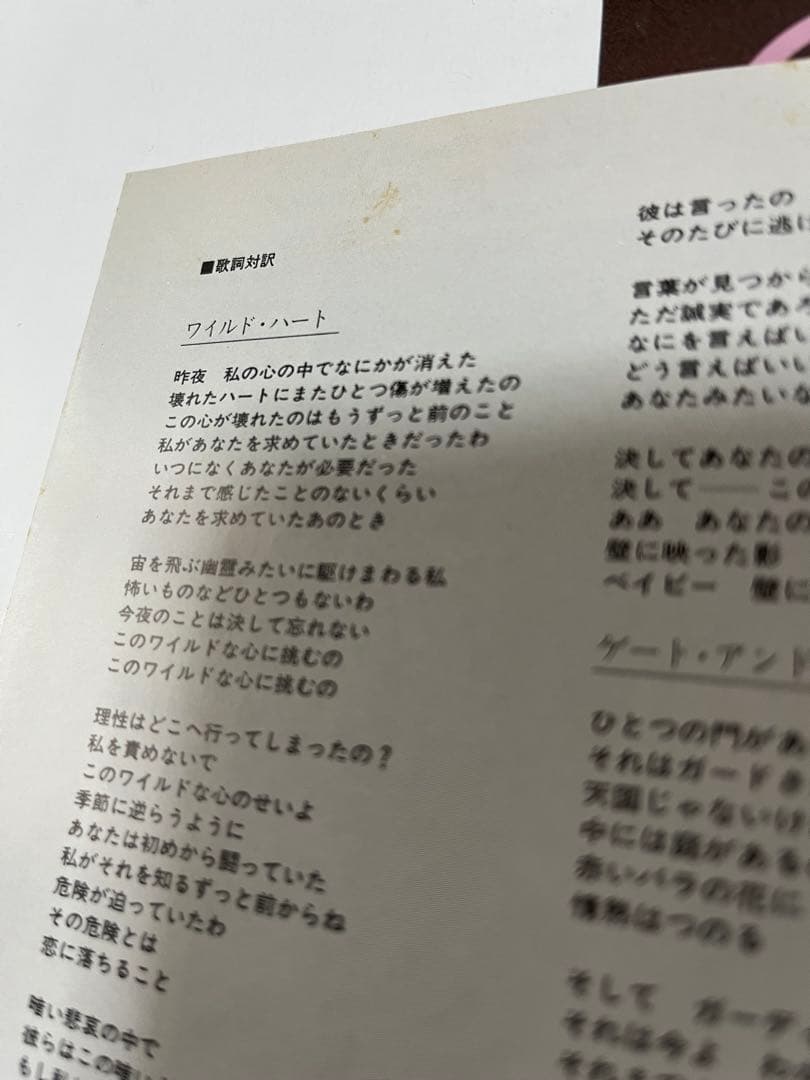 ■歌詞対訳
ワイルド・ハート
昨夜　私の心の中でなにかが消えた
壊れたハートにまたひとつ傷が増えたの
この心が壊れたのはもうずっと前のこと
私があなたを求めていたときだったわ
いつになくあなたが必要だった
それまで感じたことのないくらい
あなたを求めていたあのとき
宙を飛ぶ幽霊みたいに駆けまわる私
怖いものなどひとつもないわ
今夜のことは決して忘れない
このワイルドな心に挑むの
このワイルドな心に挑むの
理性はどこへ行ってしまったの？
私を責めないで
このワイルドな心のせいよ
季節に逆らうように
あなたは初めから闘っていた
私がそれを知るずっと前からね
危険が迫っていたわ
その危険とは
恋に落ちること
暗い悲哀の中で
彼らはこの暗い
もし私
彼は言ったの
そのたびに逃げ
言葉が見つから
ただ誠実であろ
なにを言えばい
どう言えばいい
あなたみたいな
決してあなたの
決して――この
ああ　あなたの
壁に映った影
ベイビー　壁に
ゲート・アンド
ひとつの門があ
それはガード
天国じゃないけ
中には庭がある
赤いバラの花に
情熱はつのる
そして　ガーデ
それは今よ